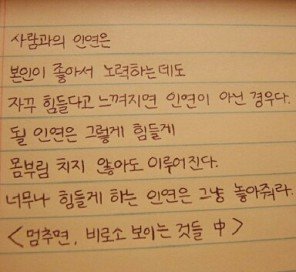 사람과의 인연은
본인이 좋아서 노력하는데도
자꾸 힘들다고 느껴지면 인연이 아닌 경우다.
될 인연은 그렇게 힘들게
몸부림 치지 않아도 이루어진다.
너무나 힘들게 하는 인연은 그냥 놓아줘라.
<멈추면, 비로소 보이는 것들 中>